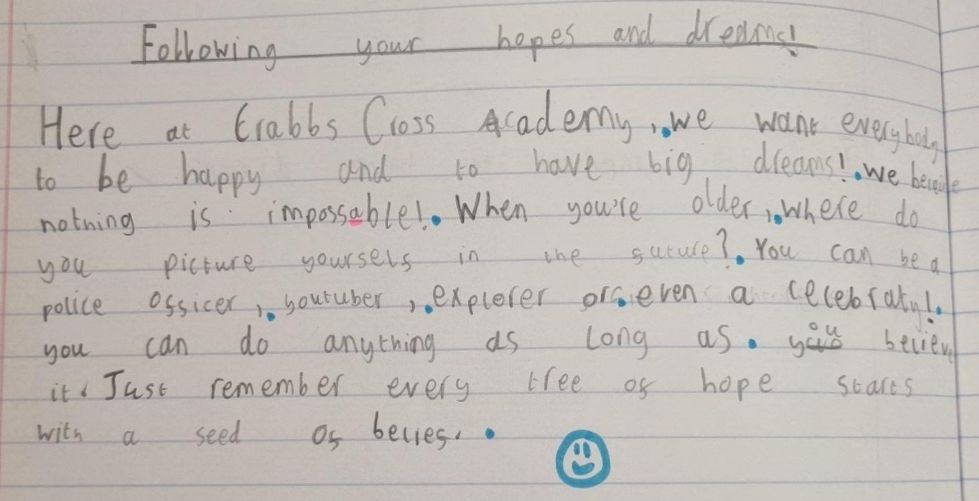 Following your hopes and dreams!
Here at Crabbs Cross Academy, we want everybody
to be happy and to have big dreams! We
nothing is impossable! When you're older, where do
you picture yourself in the future? You can be a
police officer, youtuber, explorer or even a celebraty!
you can do anything as long as you believe
it. Just remember every tree of hope starts
with a seed of belief.